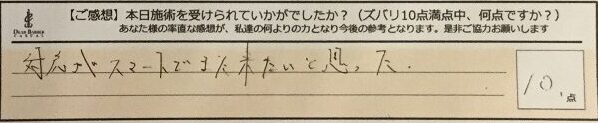 【ご感想】本日施術を受けられていかがでしたか？（ズバリ10点満点中、何点ですか？）
あなた様の率直な感想が、私達の何よりの力となり今後の参考となります。是非ご協力お願いします
対応がスマートでまた来たいと思った.
10.点